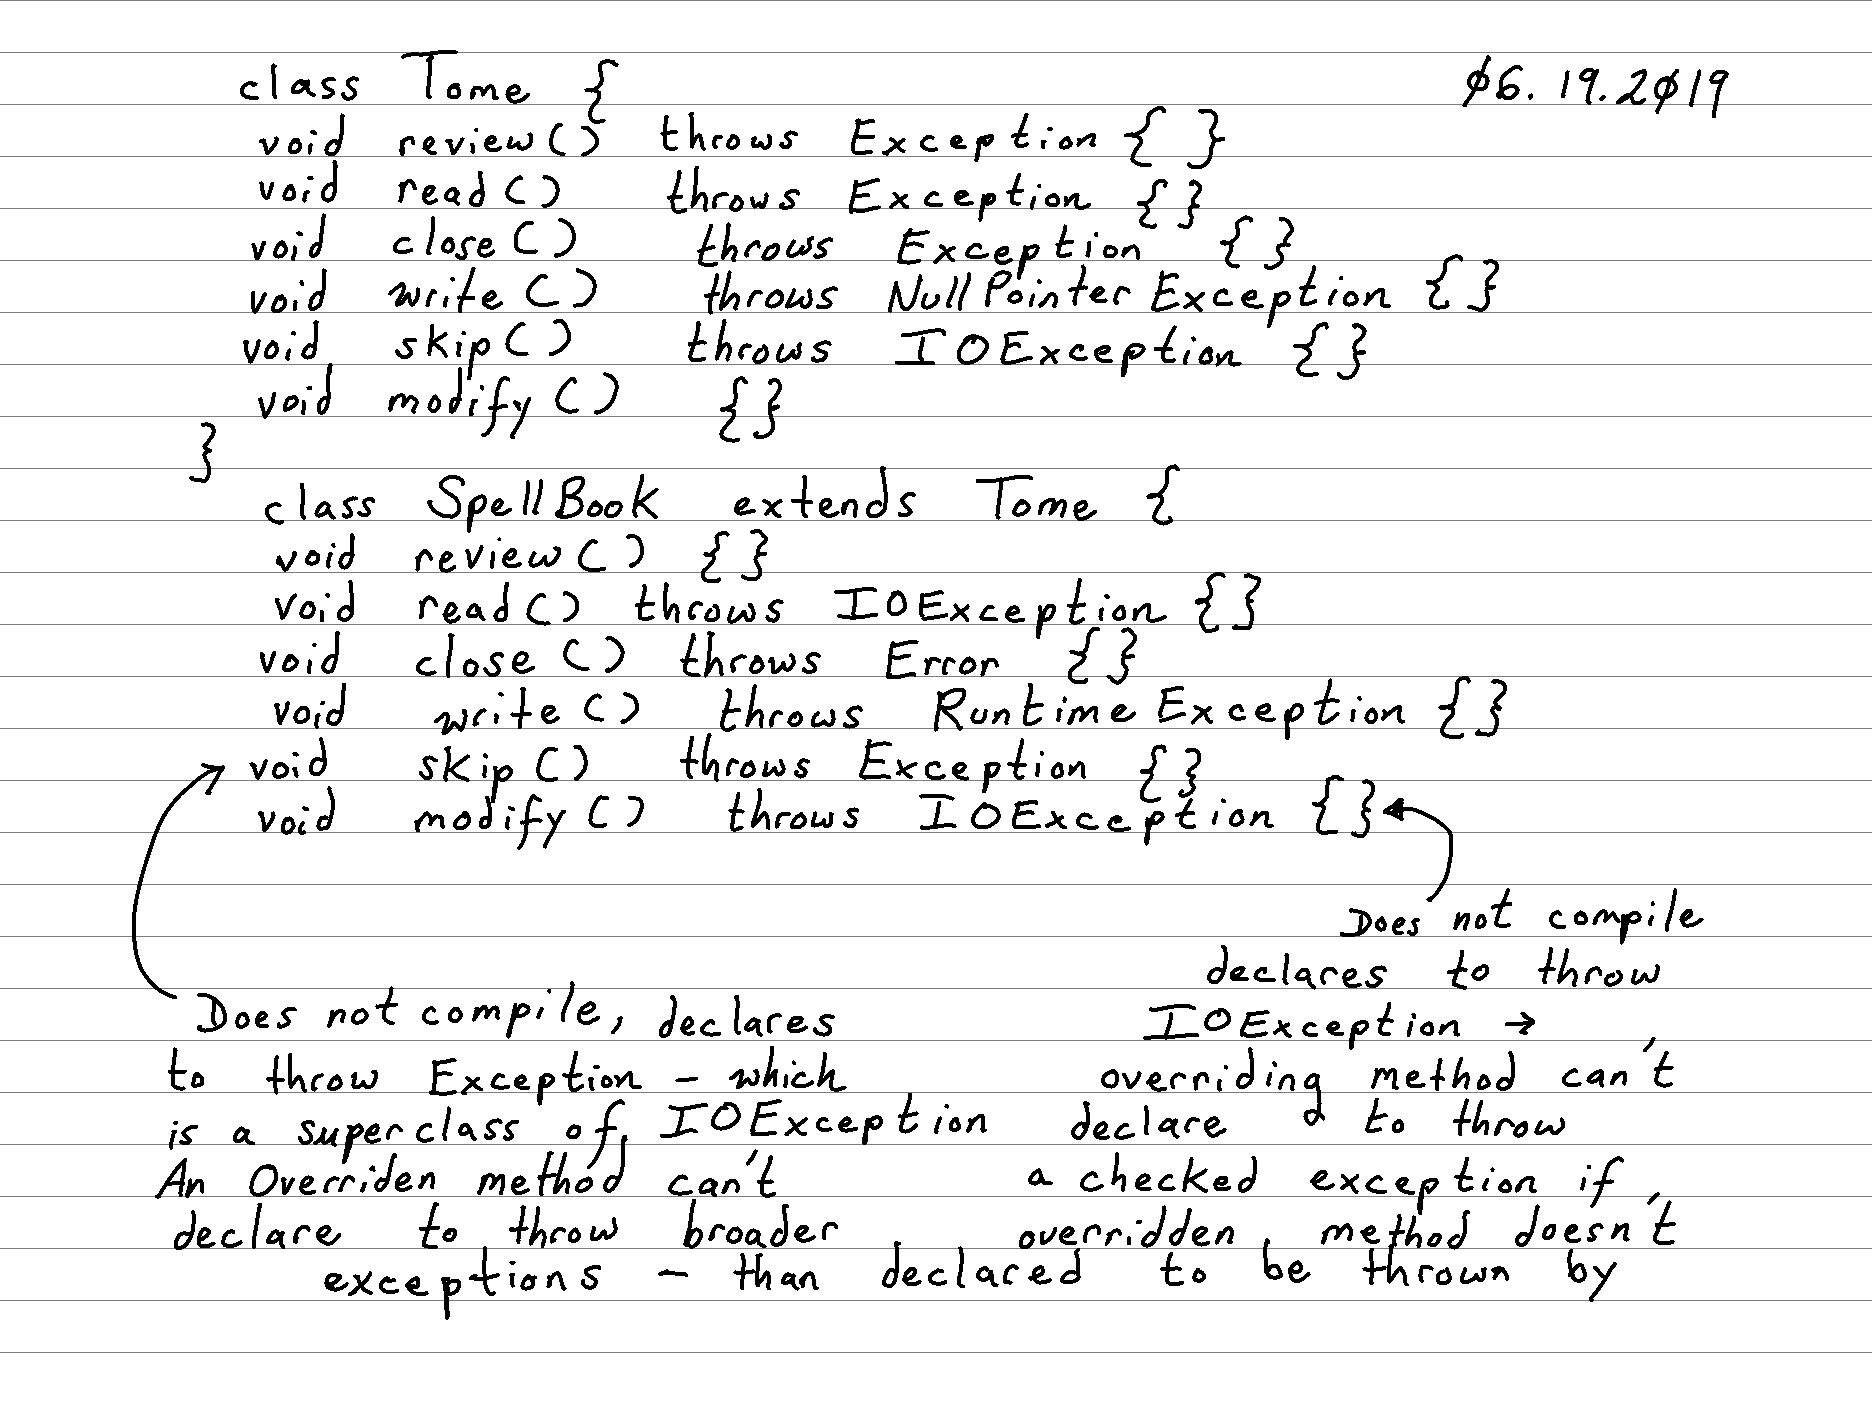 class Tome {
06.19.2019
void review() throws Exception { }
void read() throws Exception {}
void close() throws Exception {}
void write() throws NullPointerException {}
void skip() throws IOException {}
void modify() {}
}
class SpellBook extends Tome {
void review() {}
void read() throws IOException {}
void close() throws Error {}
void write() throws RuntimeException {}
void skip() throws Exception {}
void modify() throws IOException {}
Does not compile, declares
to throw Exception - which
is a superclass of IOException
An Overriden method can't
declare to throw broader
exceptions - than declared to be thrown by
Does not compile
declares to throw
IOException →
overriding method can't
declare to throw
a checked exception if
overridden method doesn't